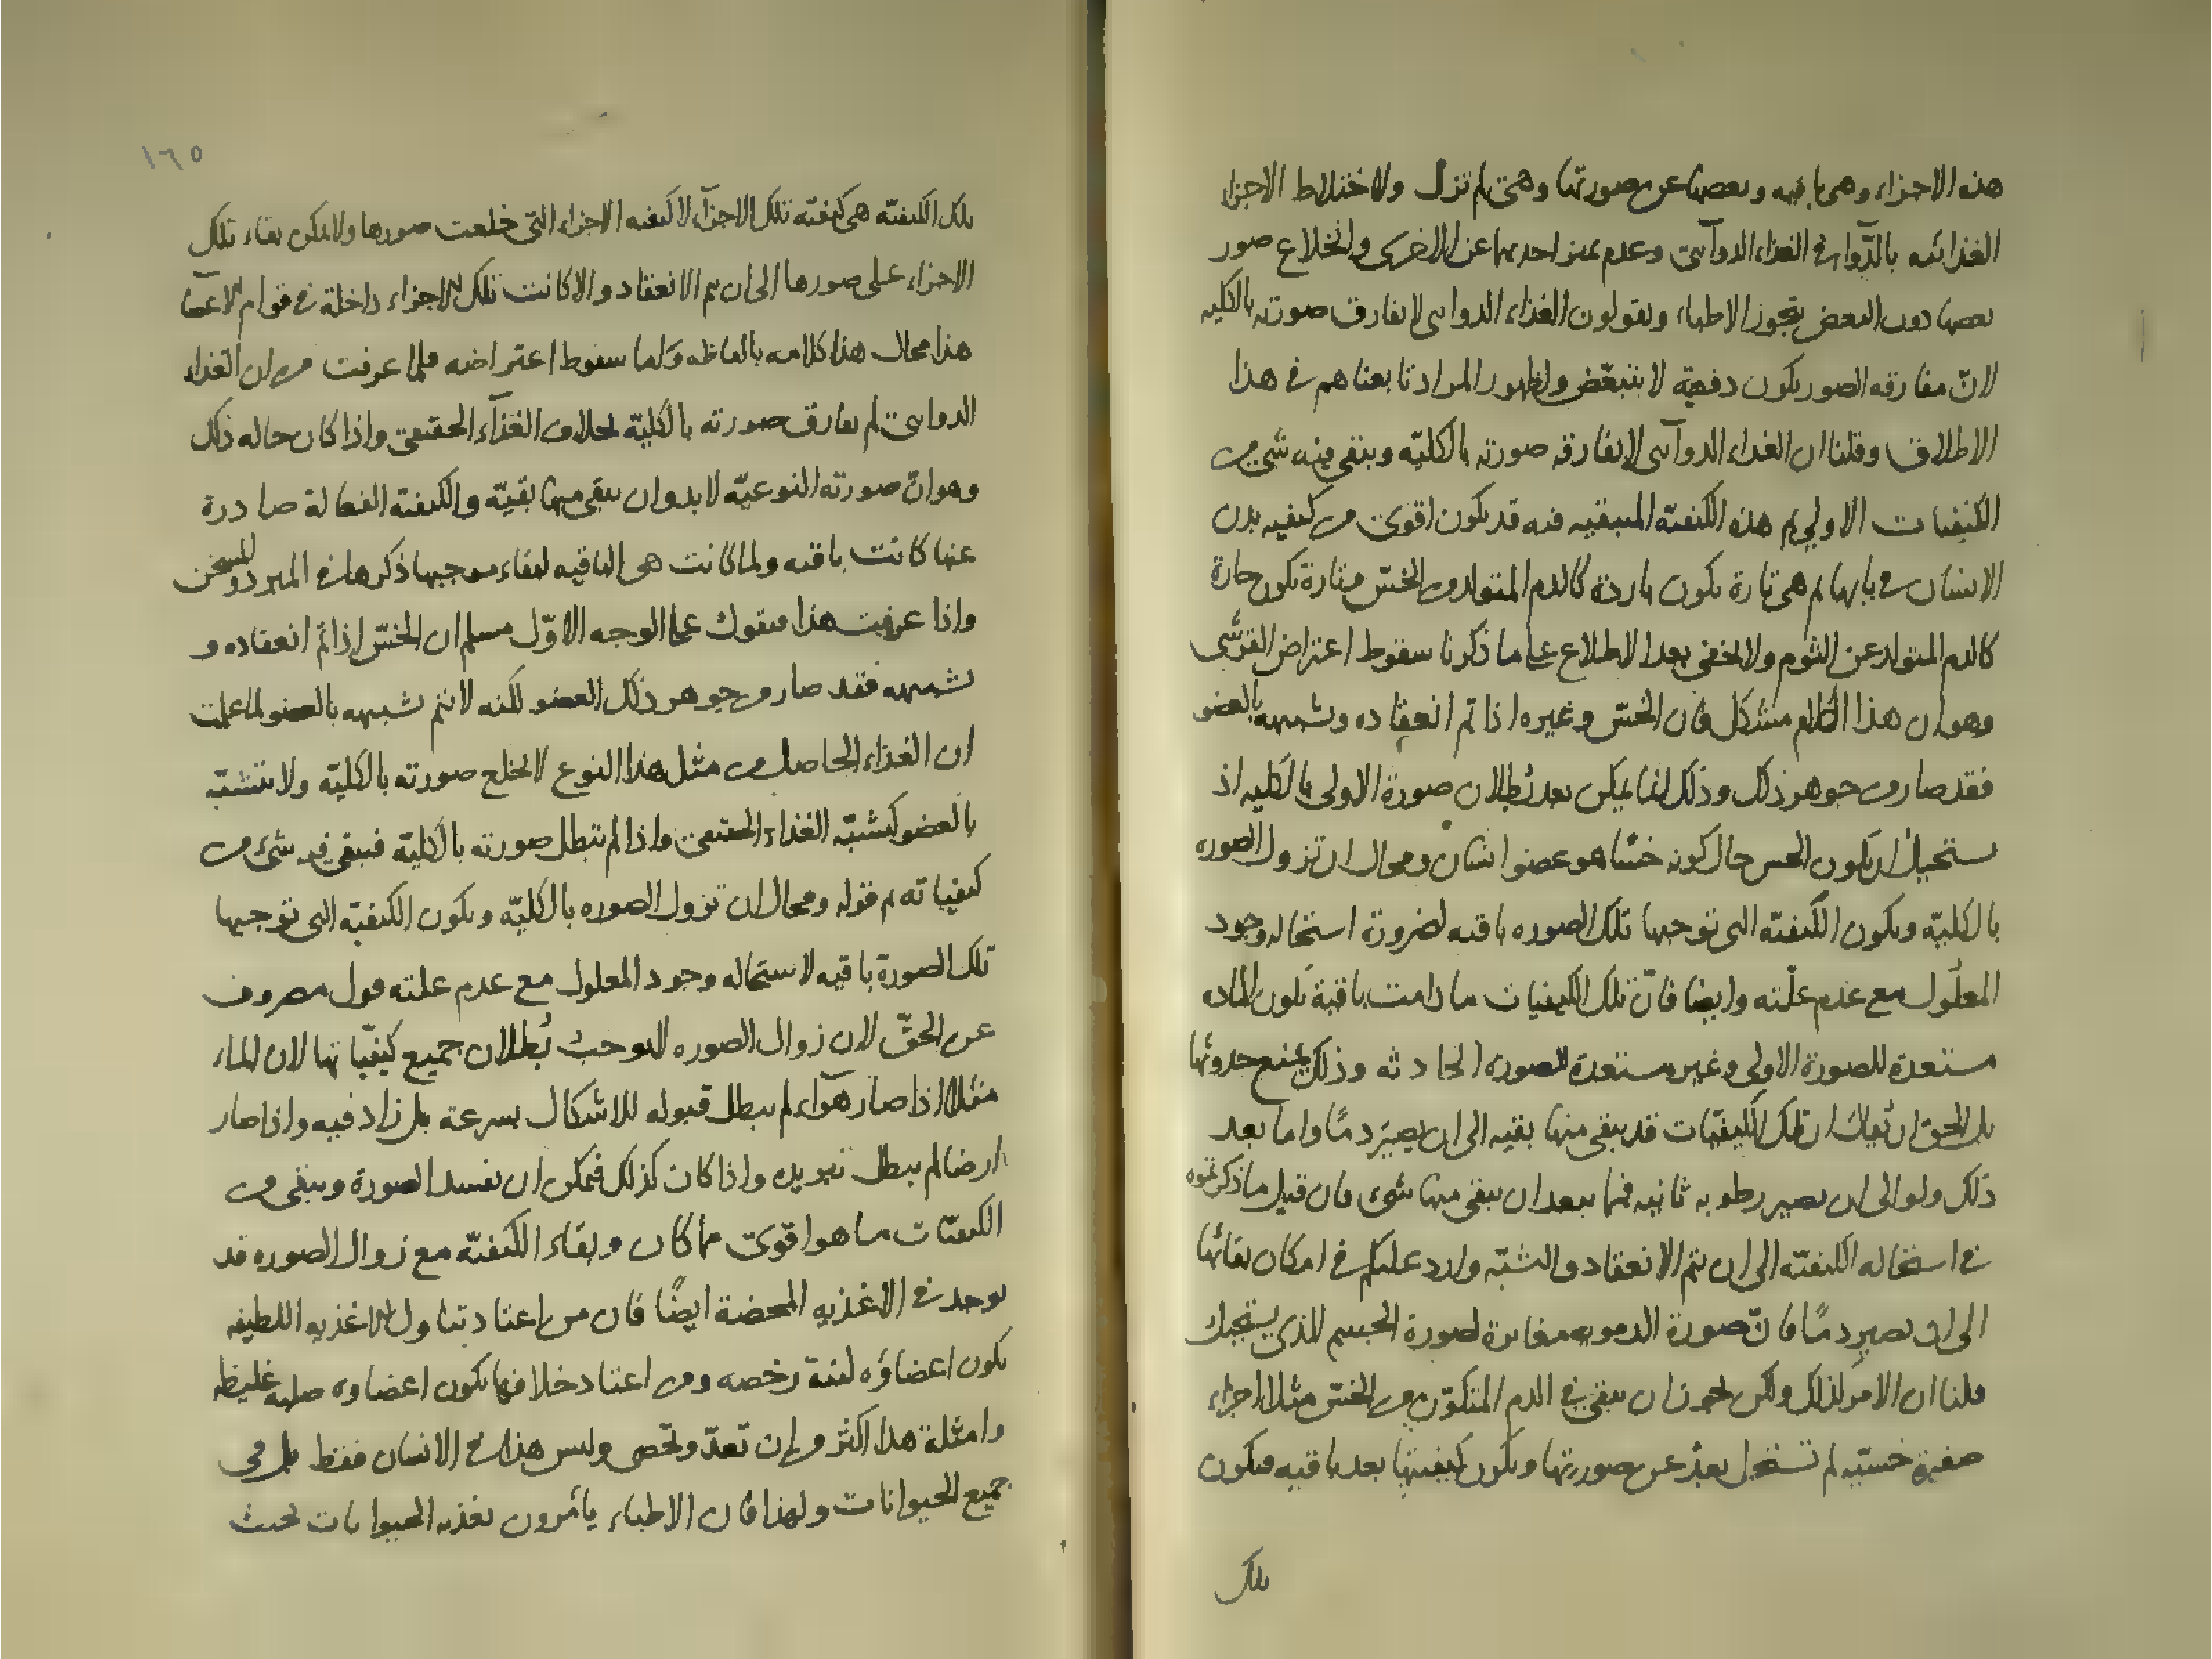 هذه الاجزاء وهى باقيه وبعضها عن صورتها وهى لم تزل ولاختلاط الاجزاء
الغذائيه بالدوائيه فى الغذاء الدوآئى وعدم تميز احديهما عن الاخرى وانخلاع صور
بعضها دون البعض تجوز الاطباء ويقولون الغذاء الدوائى لا يفارق صورته بالكليه
لانّ مفارقه الصور يكون دفعيّة لا يتبعّض ولظهور المراد تابعناهم فى هذا
الاطلاق وقلنا ان الغذاء الدوآئى لا يفارقه صورته بالكليّه ويبقى فيه شئ من
الكيفيات الاولى ثم هذه الكيفيّه المتبقيه فيه قد يكون اقوى من كيفيه بدن
الانسان فى بابها ثم هى تارة يكون باردة كالدم المتولد من الخسّ وتارة يكون حارة
كالدم المتولد عن الثوم ولا يخفى بعد الاطلاع على ما ذكرنا سقوط اعتراض القرشى
وهو ان هذا الكلام مشكل فان الخسّ وغيره اذا تم انعقاده وتشبهه بالعضو
فقد صار من جوهر ذلك وذلك انما يمكن بعد بُطلان صورة الاولى بالكليه اذ
يستحيل ان يكون الخس حال كونه خسّا هو عضو انسان ومحال ان تزول الصوره
بالكليّه ويكون الكيفيّه التى توجبها تلك الصوره باقيه لضرورة استحاله وجود
المعلول مع عدم علّته وايضا فانّ تلك الكيفيات ما دامت باقية يكون الماده
مستعدة للصورة الاولى وغير مستعدة للصوره الحادثه وذلك يمنع حدوثها
بل الحق ان يُقال ان تلك الكيفيّات قد يبقى منها بقيه الى ان يصير دمًا واما بعد
ذلك ولو الى ان يصير رطوبه ثانيه فمما يبعد ان يبقى منها شئ فان قيل ما ذكرتموه
فى استحاله الكيفيّه الى ان يتم الانعقاد والتشبّه وارد عليكم فى امكان بقائها
الى ان يصير دمًا فانّ صورة الدمويه مغايرة لصورة الجسم الذى يستحيل
قلنا ان الامر كذلك ولكن يجوز ان يبقى فى الدم المتكوّن من الخسّ مثلا اجزاء
صغيرة خسّيّه لم تستحل بعد عن صورتها ويكون كيفيتها بعد باقيه فيكون
تلك
١٦٥
تلك الكيفيّه هى كيفيّه تلك الاجزآء لا كيفيه الاجزاء التى خلعت صورها ولا يمكن بقاء تلك
الاجزاء على صورها الى ان يتم الانعقاد والا كانت تلك الاجزاء داخلة فى قوام الاعضآء
هذا محال هذا كلامه بالفاظه واما سقوط اعتراضه فلما عرفت من ان الغذاء
الدوائى لم يفارق صورته بالكليّة بخلاف الغذآء الحقيقى واذا كان حاله ذلك
وهو انّ صورته النوعيّه لابد وان يبقى منها بقيّه والكيفيّه الفعالة صادرة
عنها كانت باقيه ولما كانت هى الباقيه لبقاء موجبها ذكرها فى المبرد والمسخن
واذا عرفت هذا فنقول على الوجه الاوّل مسلم ان الخسّ اذا تم انعقاده و
تشبهه فقد صار من جوهر ذلك العضو لكنه لا يتم تشبهه بالعضو لما علمت
ان الغذاء الحاصل من مثل هذا النوع لا يخلع صورته بالكليّه ولا يتشبّه
بالعضو كتشبّه الغذاء الحقيقى واذا لم تبطل صورته بالكليّه فيبقى فيه شئ من
كيفياته ثم قوله ومحال ان تزول الصوره بالكليّه ويكون الكيفيّه التى توجبها
تلك الصورة باقيه لاستحاله وجود المعلول مع عدم علته قول مصروف
عن الحقّ لان زوال الصوره لا يوجب بُطلان جميع كيفيّاتها لان الماء
مثلا اذا صار هوآء لم يبطل قبوله للاشكال بسرعة بل زاد فيه واذا صار
ارضا لم يبطل تبريده واذا كان كذلك فيمكن ان تفسد الصورة ويبقى من
الكيفيّات ما هو اقوى مما كان وبقاء الكيفيّه مع زوال الصوره قد
يوجد فى الاغذيه المحضة ايضًا فان من اعتاد تناول الاغذيه اللطيفه
يكون اعضاؤه لينة رخصه ومن اعتاد خلافها يكون اعضاوه صلبه غليظه
وامثلة هذا اكثر من ان تعدّ وتحصى وليس هذا فى الانسان فقط بل فى
جميع الحيوانات ولهذا فان الاطباء يأمرون بغذيه الحيوانات بحيث